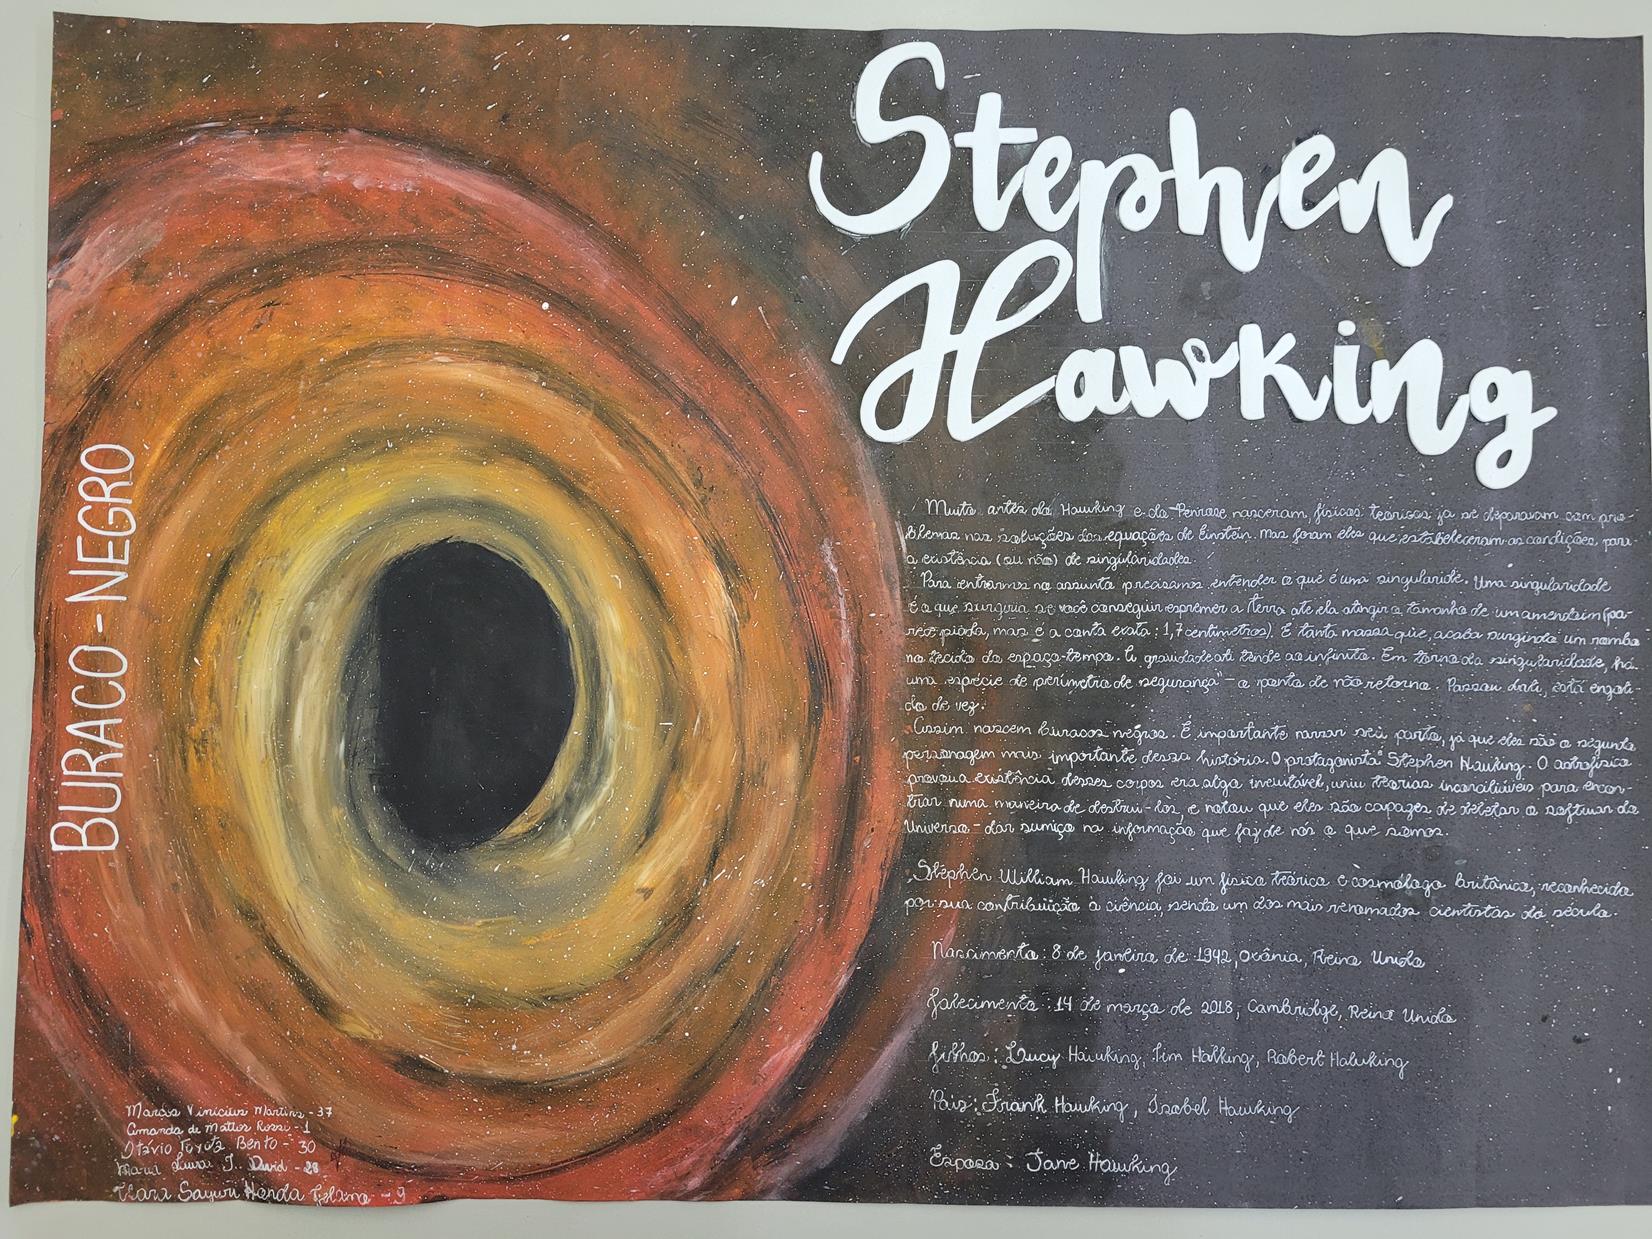 Stephen
Hawking
BURACO - NEGRO
Muito antes de Hawking e de Penrose nasceram, físicos teóricos já se deparavam com pro-
blemas nas soluções das equações de Einstein. Mas foram eles que estabeleceram as condições para
a existência (ou não) de singularidades.
Para entrarmos no assunto precisamos entender o que é uma singularide. Uma singularidade
é o que surgiria se você conseguir espremer a Terra até ela atingir o tamanho de um amendoim (pa-
rece piada, mas é a conta exata: 1,7 centímetros). É tanta massa que, acaba surgindo um rombo
no tecido do espaço-tempo. A gravidade ali tende ao infinito. Em torno da singularidade, há
uma espécie de perímetro de segurança" - o ponto de não retorno. Passou dali, está engoli-
do de vez.
Assim nascem buracos negros. É importante narrar seu parto, já que eles são o segundo
personagem mais importante dessa história. O protagonista é Stephen Hawking. O astrofísico
provou a existência desses corpos era algo inevitável, uniu teorias inconciliáveis para encon-
trar numa maneira de destruí-los, e notou que eles são capazes de deletar o software do
Universo - dar sumiço na informação que faz de nós o que somos.
Stephen William Hawking foi um físico teórico e cosmólogo britânico, reconhecido
por sua contribuição à ciência, sendo um dos mais renomados cientistas do século.
Nascimento: 8 de janeiro de 1942, Oxônia, Reino Unido
Falecimento: 14 de março de 2018, Cambridge, Reino Unido
filhos: Lucy Hawking, Tim Hawking, Robert Hawking
Pais: Frank Hawking, Isabel Hawking
Esposa: Jane Hawking
Marcos Vinicius Martins - 37
Amanda de Mattos Rossi - 1
Otávio Toyota Bento - 30
Maria Luiza T. David - 28
Sayuri Honda - 9